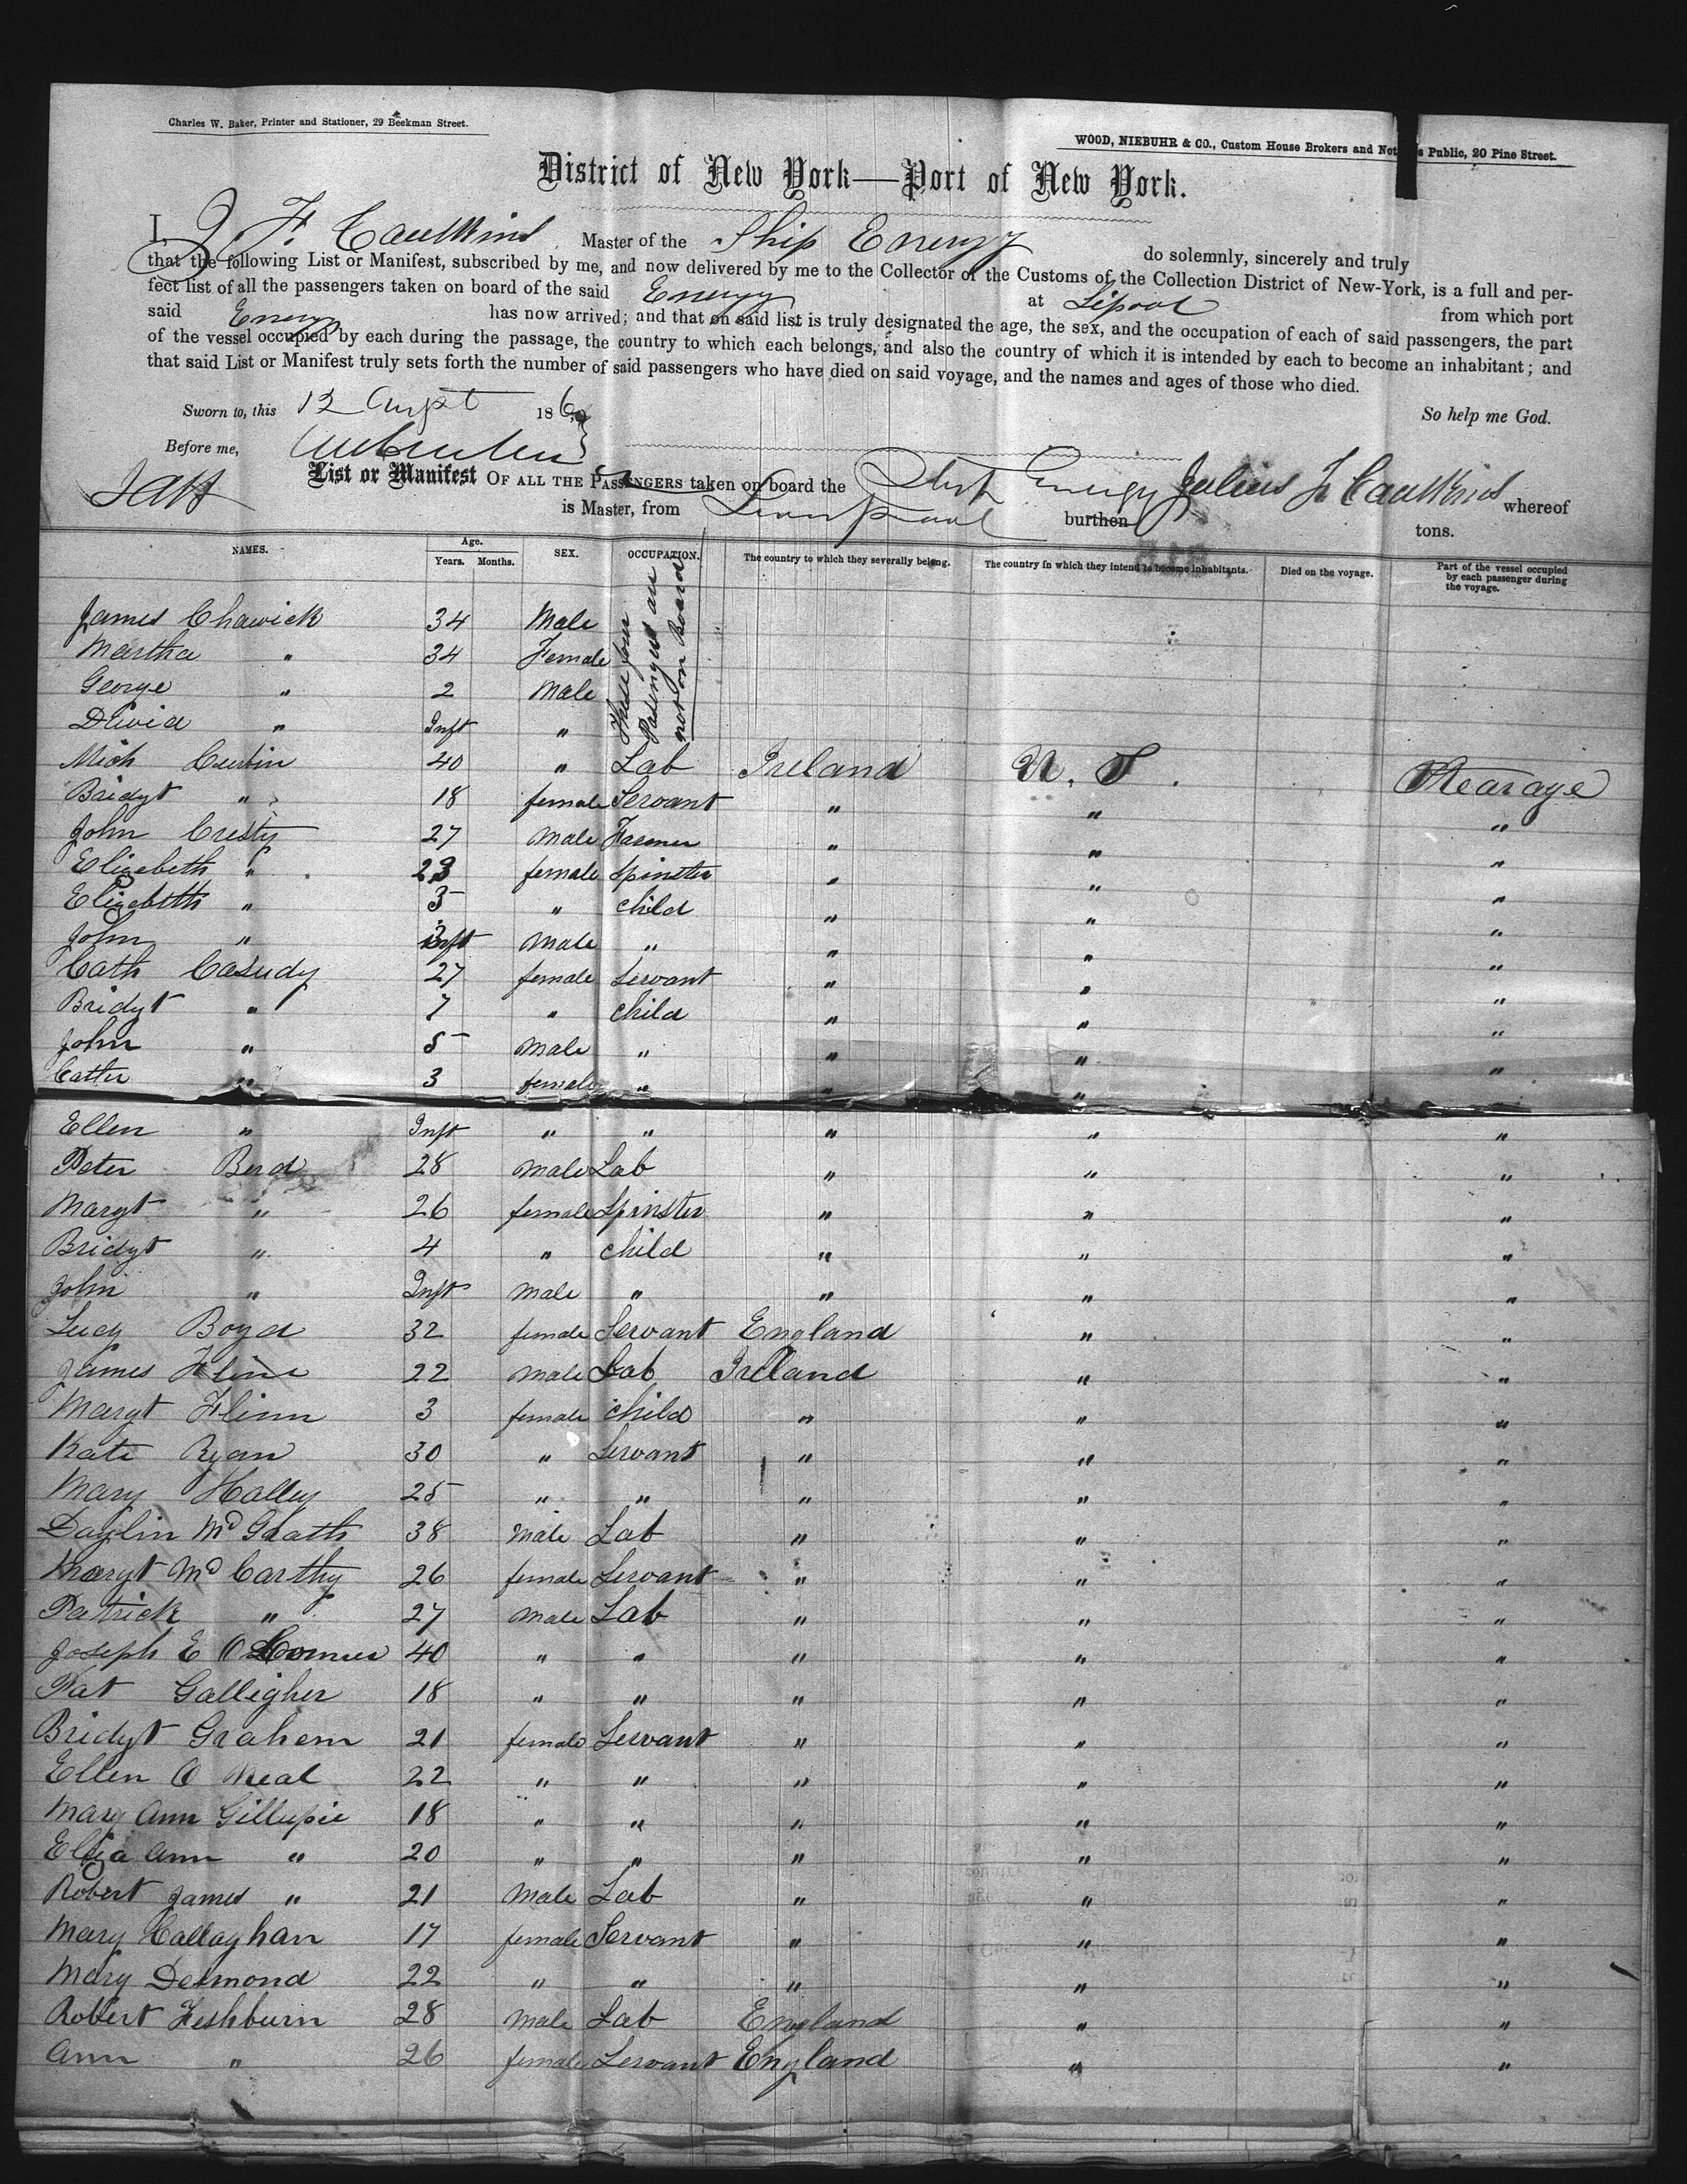 Charles W. Baker, Printer and Stationer, 29 Beekman Street.
WOOD, NIEBUHR & CO., Custom House Brokers and Not s Public, 20 Pine Street.
District of New York—Port of New York.
I, J. F. Caulkins Master of the Ship Energy do solemnly, sincerely and truly
that the following List or Manifest, subscribed by me, and now delivered by me to the Collector of the Customs of the Collection District of New-York, is a full and per-
fect list of all the passengers taken on board of the said Energy at Lipool from which port
said Energy has now arrived; and that on said list is truly designated the age, the sex, and the occupation of each of said passengers, the part
of the vessel occupied by each during the passage, the country to which each belongs, and also the country of which it is intended by each to become an inhabitant; and
that said List or Manifest truly sets forth the number of said passengers who have died on said voyage, and the names and ages of those who died.
Sworn to, this 12 Augst 186 So help me God.
Before me,
List or Manifest OF ALL THE PASSENGERS taken on board the Ship Energy Julius F Caulkins whereof
is Master, from Liverpool burthen tons.
NAMES. Age. Years. Months. SEX. OCCUPATION. The country to which they severally belong. The country in which they intend to become inhabitants. Died on the voyage. Part of the vessel occupied by each passenger during the voyage.
These four Pasengers are not on Board
James Chawick 34 Male
Martha " 34 Female
George " 2 Male
David " Inft "
Mich Curbin 40 " Lab Ireland U. S. Stearage
Bridgt " 18 female Servant " " "
John Cresty 27 Male Farmer " " "
Elizebeth " 23 female Spinster " " "
Elizebeth " 3 " child " " "
John " Inft Male " " " "
Cath Casudy 27 female Servant " " "
Bridgt " 7 " child " " "
John " 5 Male " " " "
Cather " 3 female " " " "
Ellen " Inft " " " " "
Peter Berd 28 Male Lab " " "
Margt " 26 female Spinster " " "
Bridgt " 4 " child " " "
John " Inft Male " " " "
Lucy Boyd 32 female Servant England " "
James Flinn 22 Male Lab Ireland " "
Margt Flinn 3 female child " " "
Kate Ryan 30 " Servant " " "
Mary Halley 25 " " " " "
Daylin McGrath 38 Male Lab " " "
Margt McCarthy 26 female Servant " " "
Patrick " 27 Male Lab " " "
Joseph E O Conner 40 " " " " "
Pat Galligher 18 " " " " "
Bridgt Grahem 21 female Servant " " "
Ellen O Neal 22 " " " " "
Mary Ann Gillispie 18 " " " " "
Eliza Ann " 20 " " " " "
Robert James " 21 Male Lab " " "
Mary Callaghan 17 female Servant " " "
Mary Desmond 22 " " " " "
Robert Feshburn 28 Male Lab England " "
Ann " 26 female Servant England " "